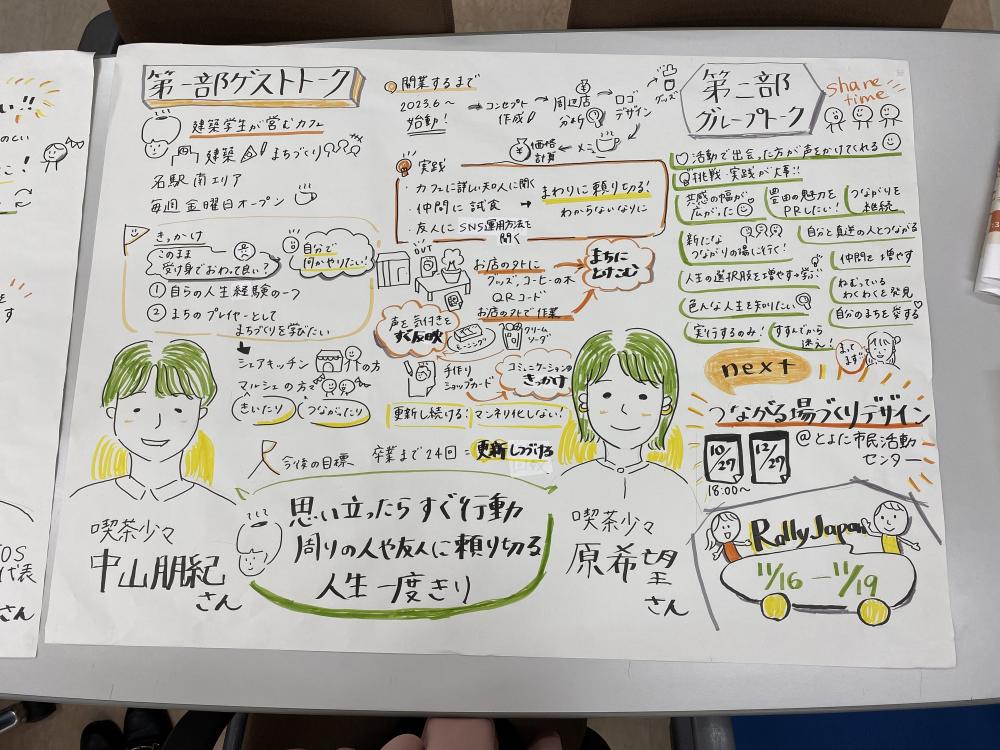 第一部ゲストトーク
建築学生が営むカフェ
建築 まちづくり
名駅南エリア
毎週金曜日オープン
きっかけ
このまま
受け身でおわって良い?
自分で
何かやりたい!
① 自らの人生経験の一つ
② まちのプレイヤーとして
まちづくりを学びたい
シェアキッチン の方
マルシェの方
きいたり つながたり
開業するまで
2023.6〜
始動!
コンセプト
作成
周辺店
分析
ロゴ
デザイン
グッズ
メニュー
価格
計算
実践
・カフェに詳しい知人に聞く
・仲間に試食
・友人にSNS運用方法を
聞く
まわりに頼り切る!
わからないなりに
OUT
お店の外に
グッズ、コーヒーの木
QRコード
お店の外で作業
まちに
とけこむ
声を気付きを
すぐ反映
モーニング
クリーム
ソーダ
手作り
ショップカード
コミュニケーションの
きっかけ
更新し続ける! マンネリ化しない!
今後の目標 卒業まで24回=更新しつづける
喫茶少々
中山朋紀
さん
思い立ったらすぐ行動
周りの人や友人に頼り切る
人生一度きり
喫茶少々
原希望
さん
第二部
グループトーク
share
time
活動で出会った方が声をかけてくれる
挑戦・実践が大事!!
共感の幅が
広がった
豊田の魅力を
PRしたい!
つながりを
継続
新たな
つながりの場に行く!
自分と真逆の人とつながる
人生の選択肢を増やす→学ぶ
仲間を増やす
色んな人生を知りたい
ねむっている
わくわくを発見
自分のまちを愛する
実行するのみ!
すすんでから
迷え!
まって
ます
next
つながる場づくりデザイン
10/27
12/27
18:00〜
@とよた市民活動
センター
Rally Japan
11/16 — 11/19
い!!
のとい
こ!
す
OS
代表
さん